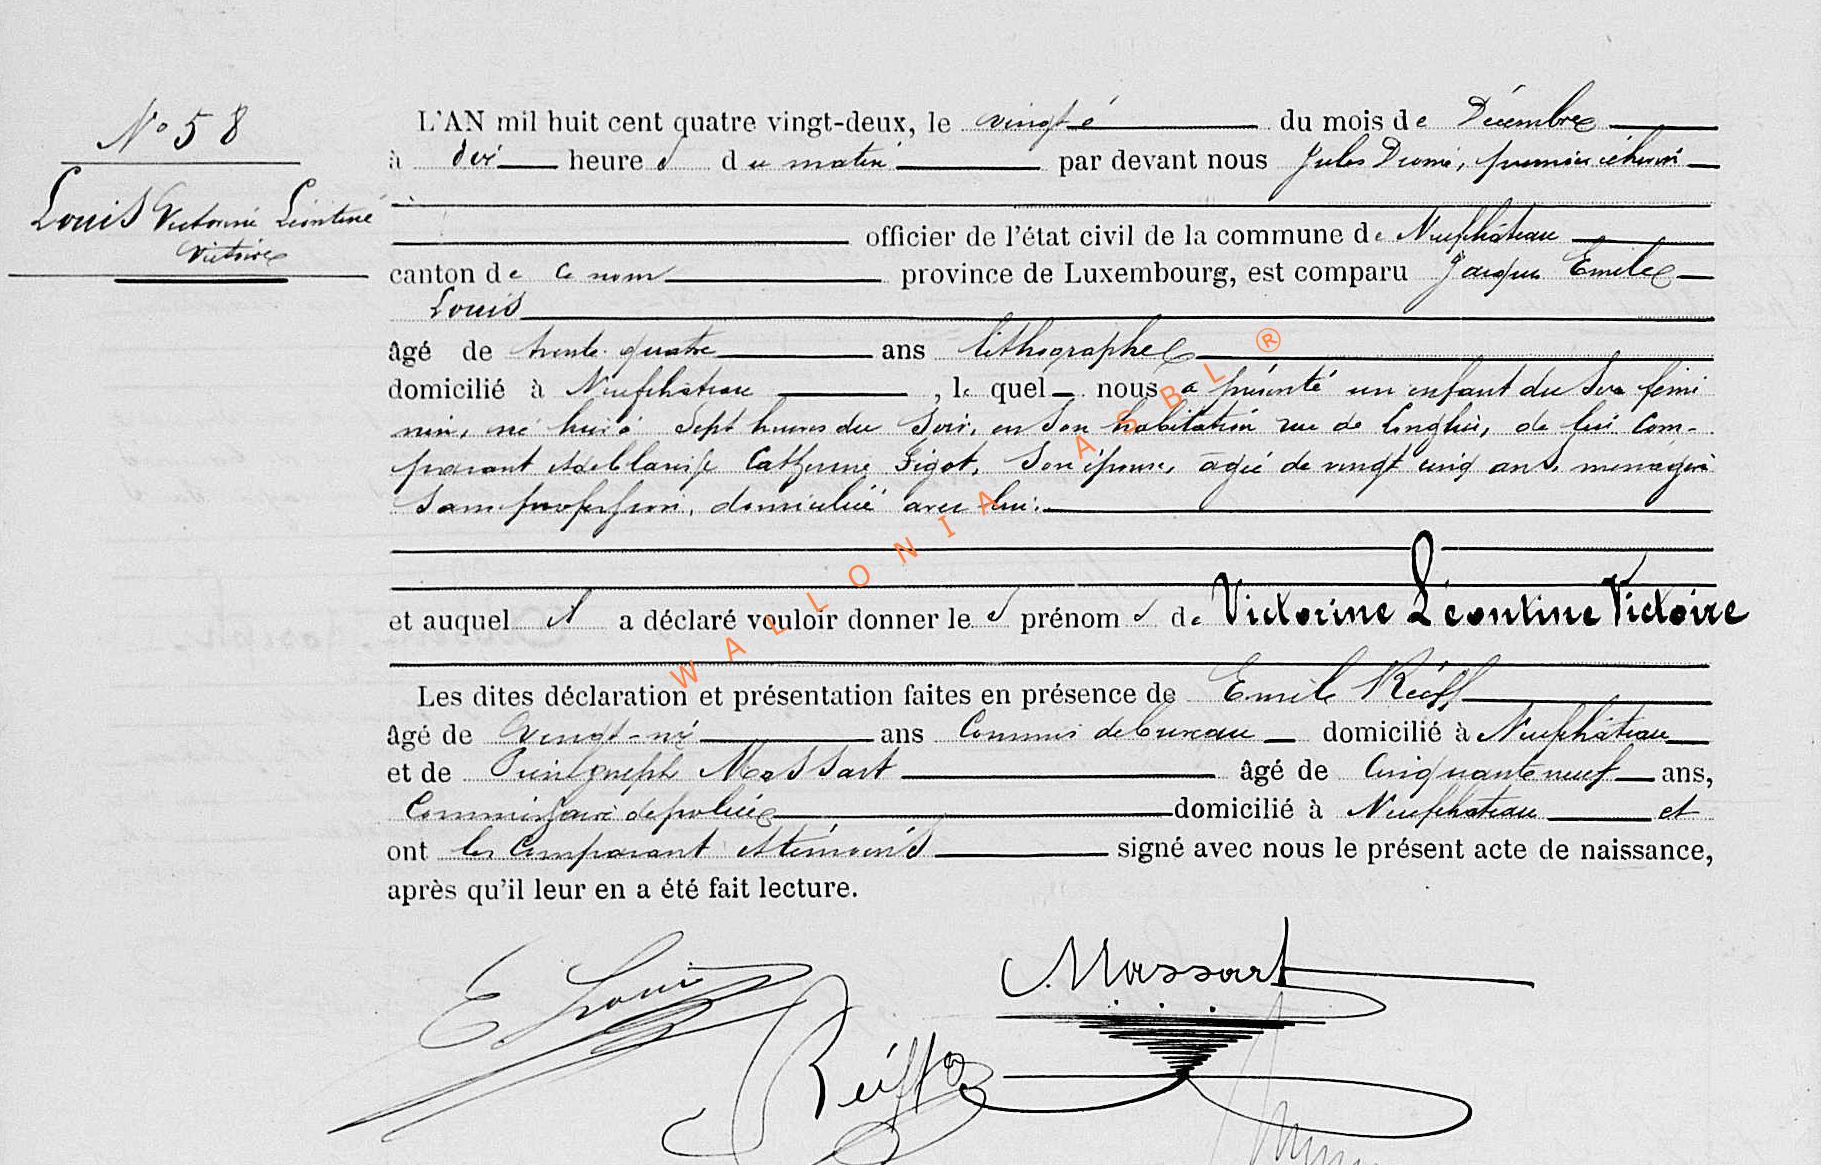 N° 58
Louis Victorine Léontine
Victoire
L'AN mil huit cent quatre vingt-deux, le vingt du mois de Décembre
à dix heures du matin par devant nous Jules premier échevin
officier de l'état civil de la commune de Neufchâteau
canton de ce nom province de Luxembourg, est comparu Jacques Emile
Louis
âgé de trente quatre ans lithographe
domicilié à Neufchateau, lequel nous a présenté un enfant du sexe fémi
nin, né hier à sept heures du soir, en son habitation rue de Longlier, de lui com-
parant et de Catherine Gigot, son épouse, âgée de vingt cinq ans, ménagère
sans profession, domiciliée avec lui.
et auquel il a déclaré vouloir donner les prénoms de Victorine Léontine Victoire
Les dites déclaration et présentation faites en présence de Emile Réiff
âgé de vingt- ans Commis de bureau domicilié à Neufchâteau
et de Massart âgé de Cinquante neuf ans,
Commissaire de police domicilié à Neufchateau et
ont les Comparant et témoins signé avec nous le présent acte de naissance,
après qu'il leur en a été fait lecture.
E Louis
Massart
Réiff
WALLONIA ASBL ®